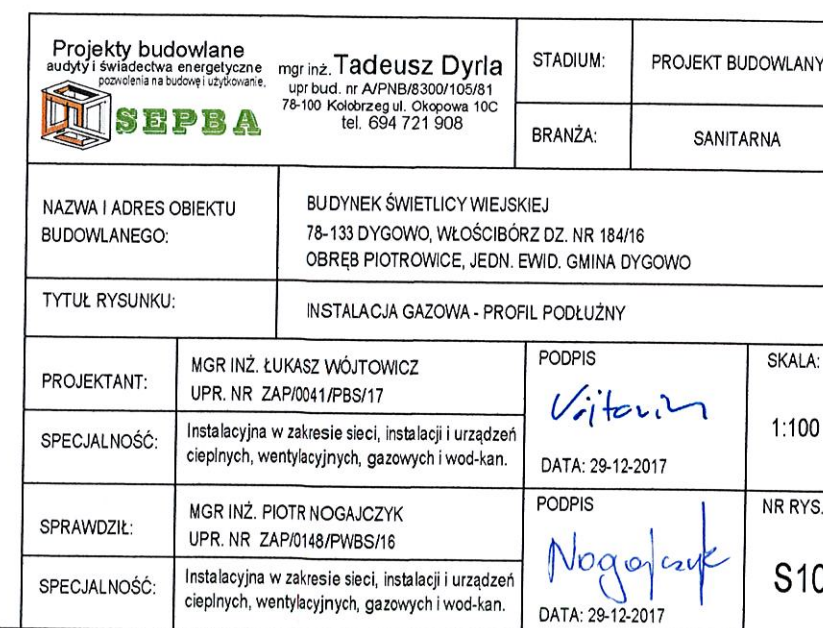 Projekty budowlane
audyty i świadectwa energetyczne
pozwolenia na budowę i użytkowanie.
SEPBA
mgr inż. Tadeusz Dyrla
upr bud. nr A/PNB/8300/105/81
78-100 Kołobrzeg ul. Okopowa 10C
tel. 694 721 908
STADIUM:
PROJEKT BUDOWLANY
BRANŻA:
SANITARNA
NAZWA I ADRES OBIEKTU
BUDOWLANEGO:
BUDYNEK ŚWIETLICY WIEJSKIEJ
78-133 DYGOWO, WŁOŚCIBÓRZ DZ. NR 184/16
OBRĘB PIOTROWICE, JEDN. EWID. GMINA DYGOWO
TYTUŁ RYSUNKU:
INSTALACJA GAZOWA - PROFIL PODŁUŻNY
PROJEKTANT:
MGR INŻ. ŁUKASZ WÓJTOWICZ
UPR. NR ZAP/0041/PBS/17
PODPIS
SKALA:
1:100
SPECJALNOŚĆ:
Instalacyjna w zakresie sieci, instalacji i urządzeń
cieplnych, wentylacyjnych, gazowych i wod-kan.
DATA: 29-12-2017
SPRAWDZIŁ:
MGR INŻ. PIOTR NOGAJCZYK
UPR. NR ZAP/0148/PWBS/16
PODPIS
Nogajczyk
NR RYS.
S10
SPECJALNOŚĆ:
Instalacyjna w zakresie sieci, instalacji i urządzeń
cieplnych, wentylacyjnych, gazowych i wod-kan.
DATA: 29-12-2017